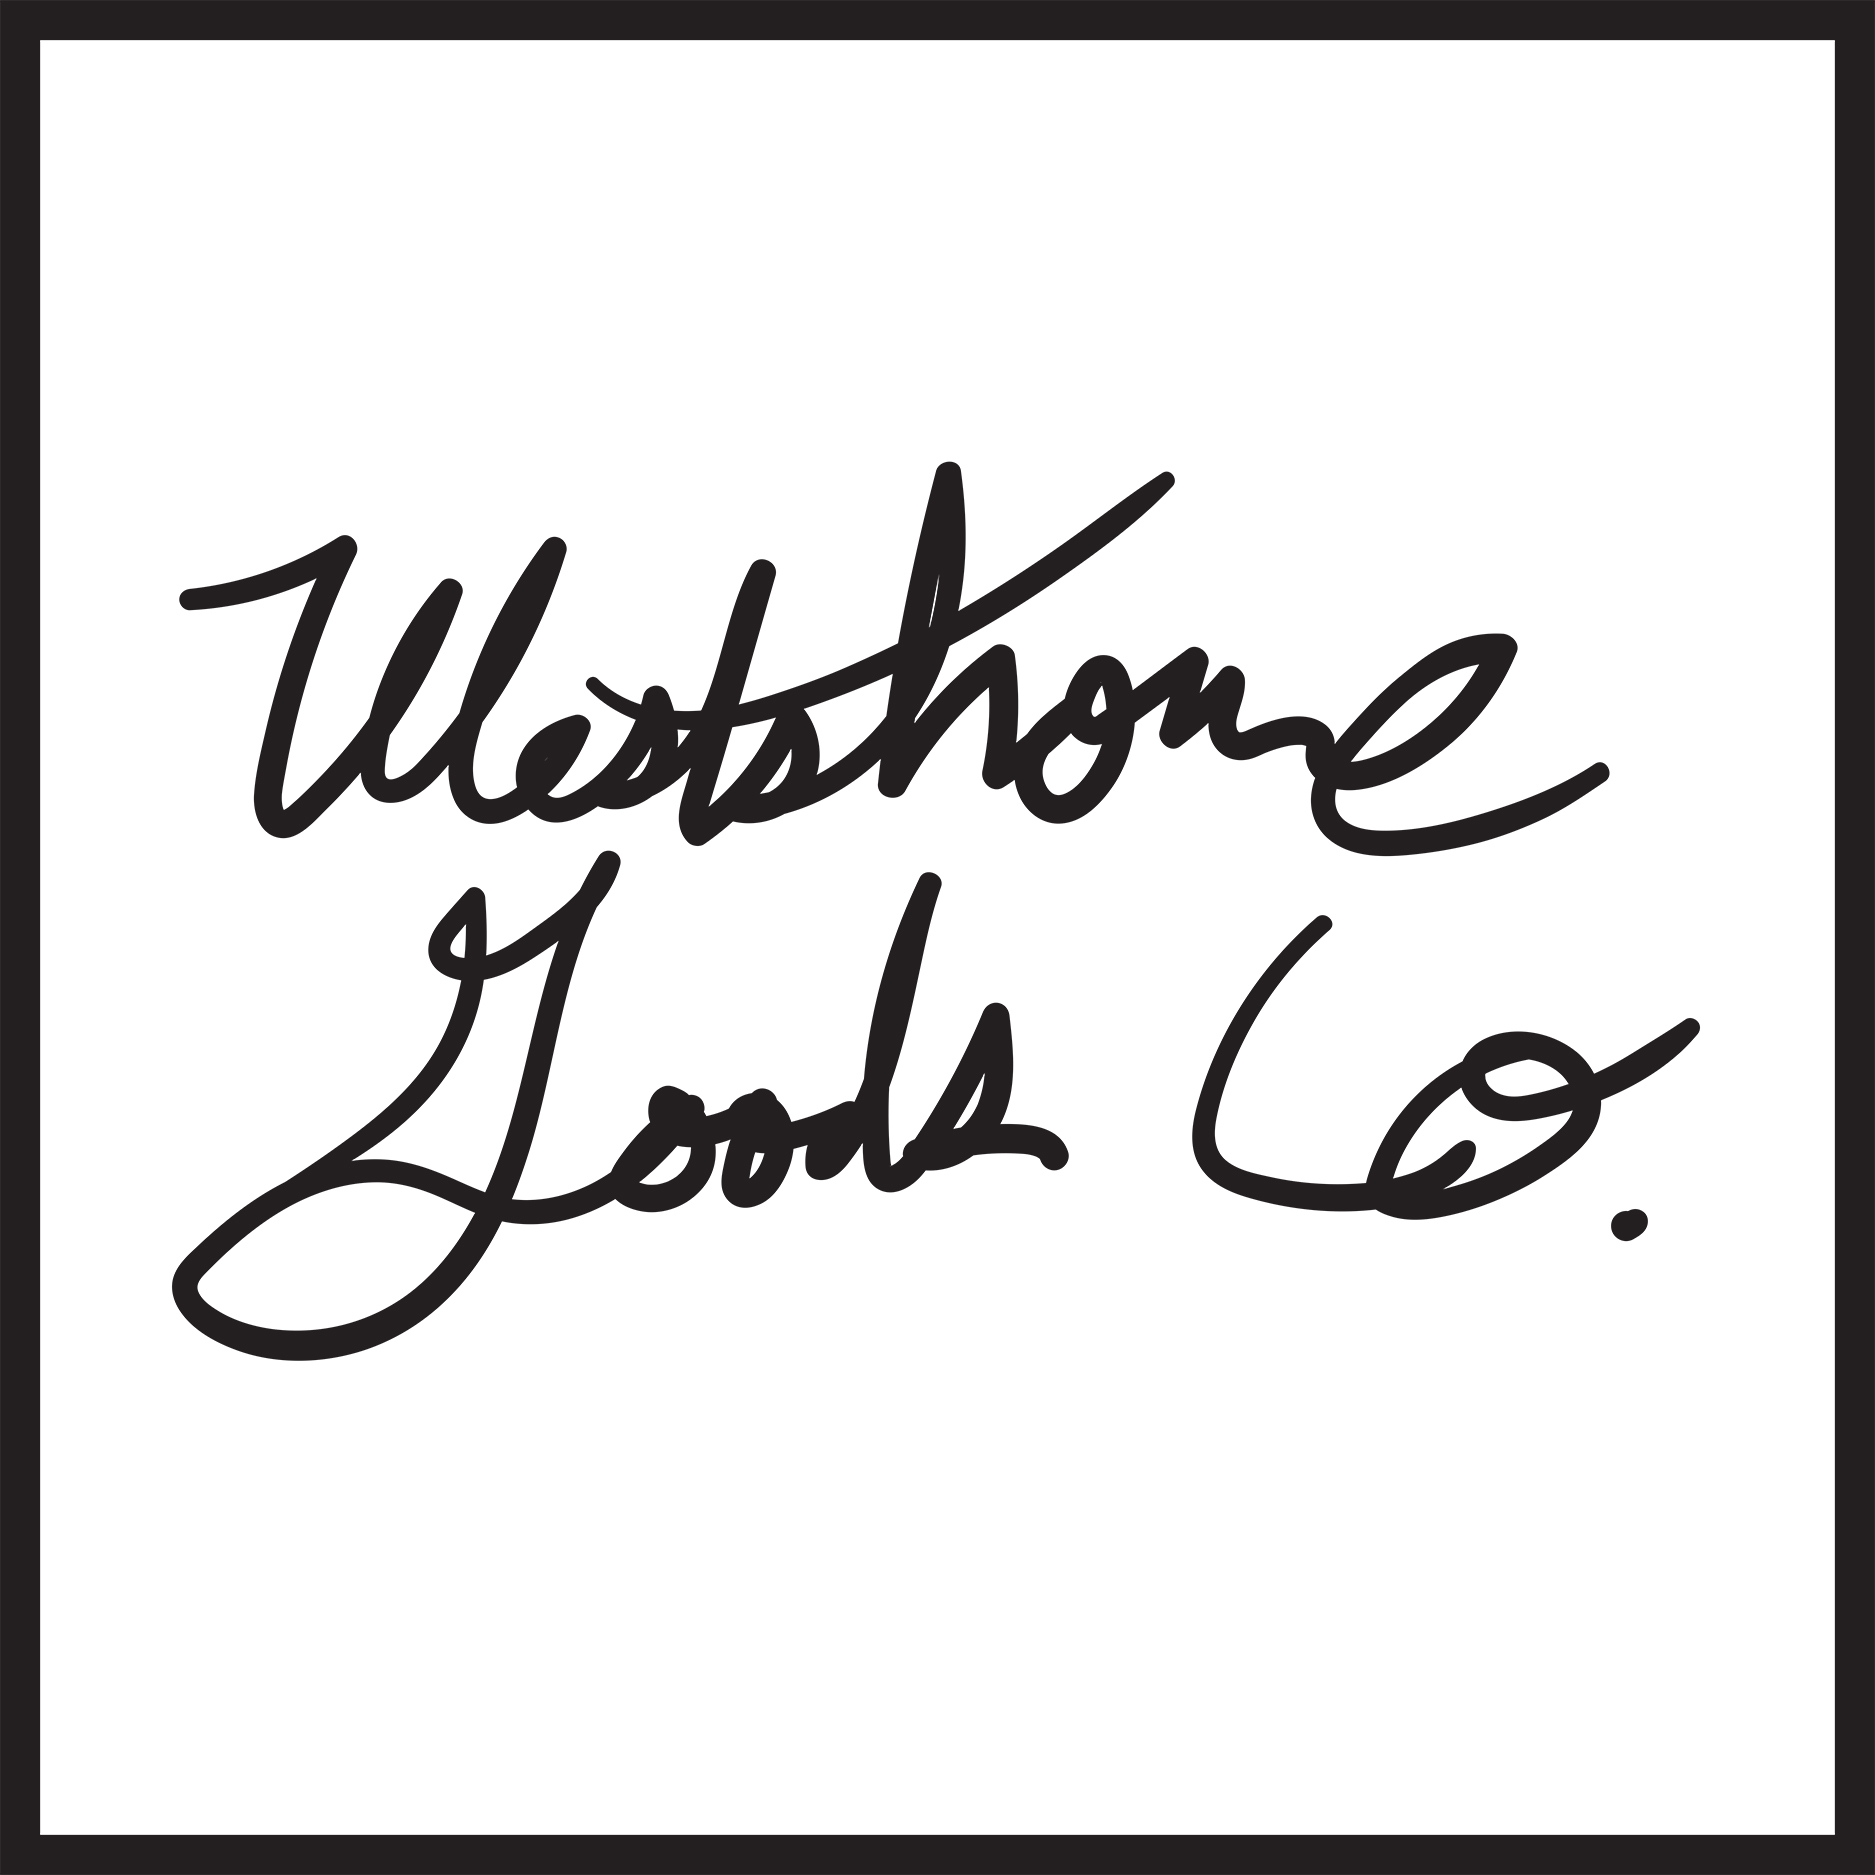 Westshome
Goods Co.